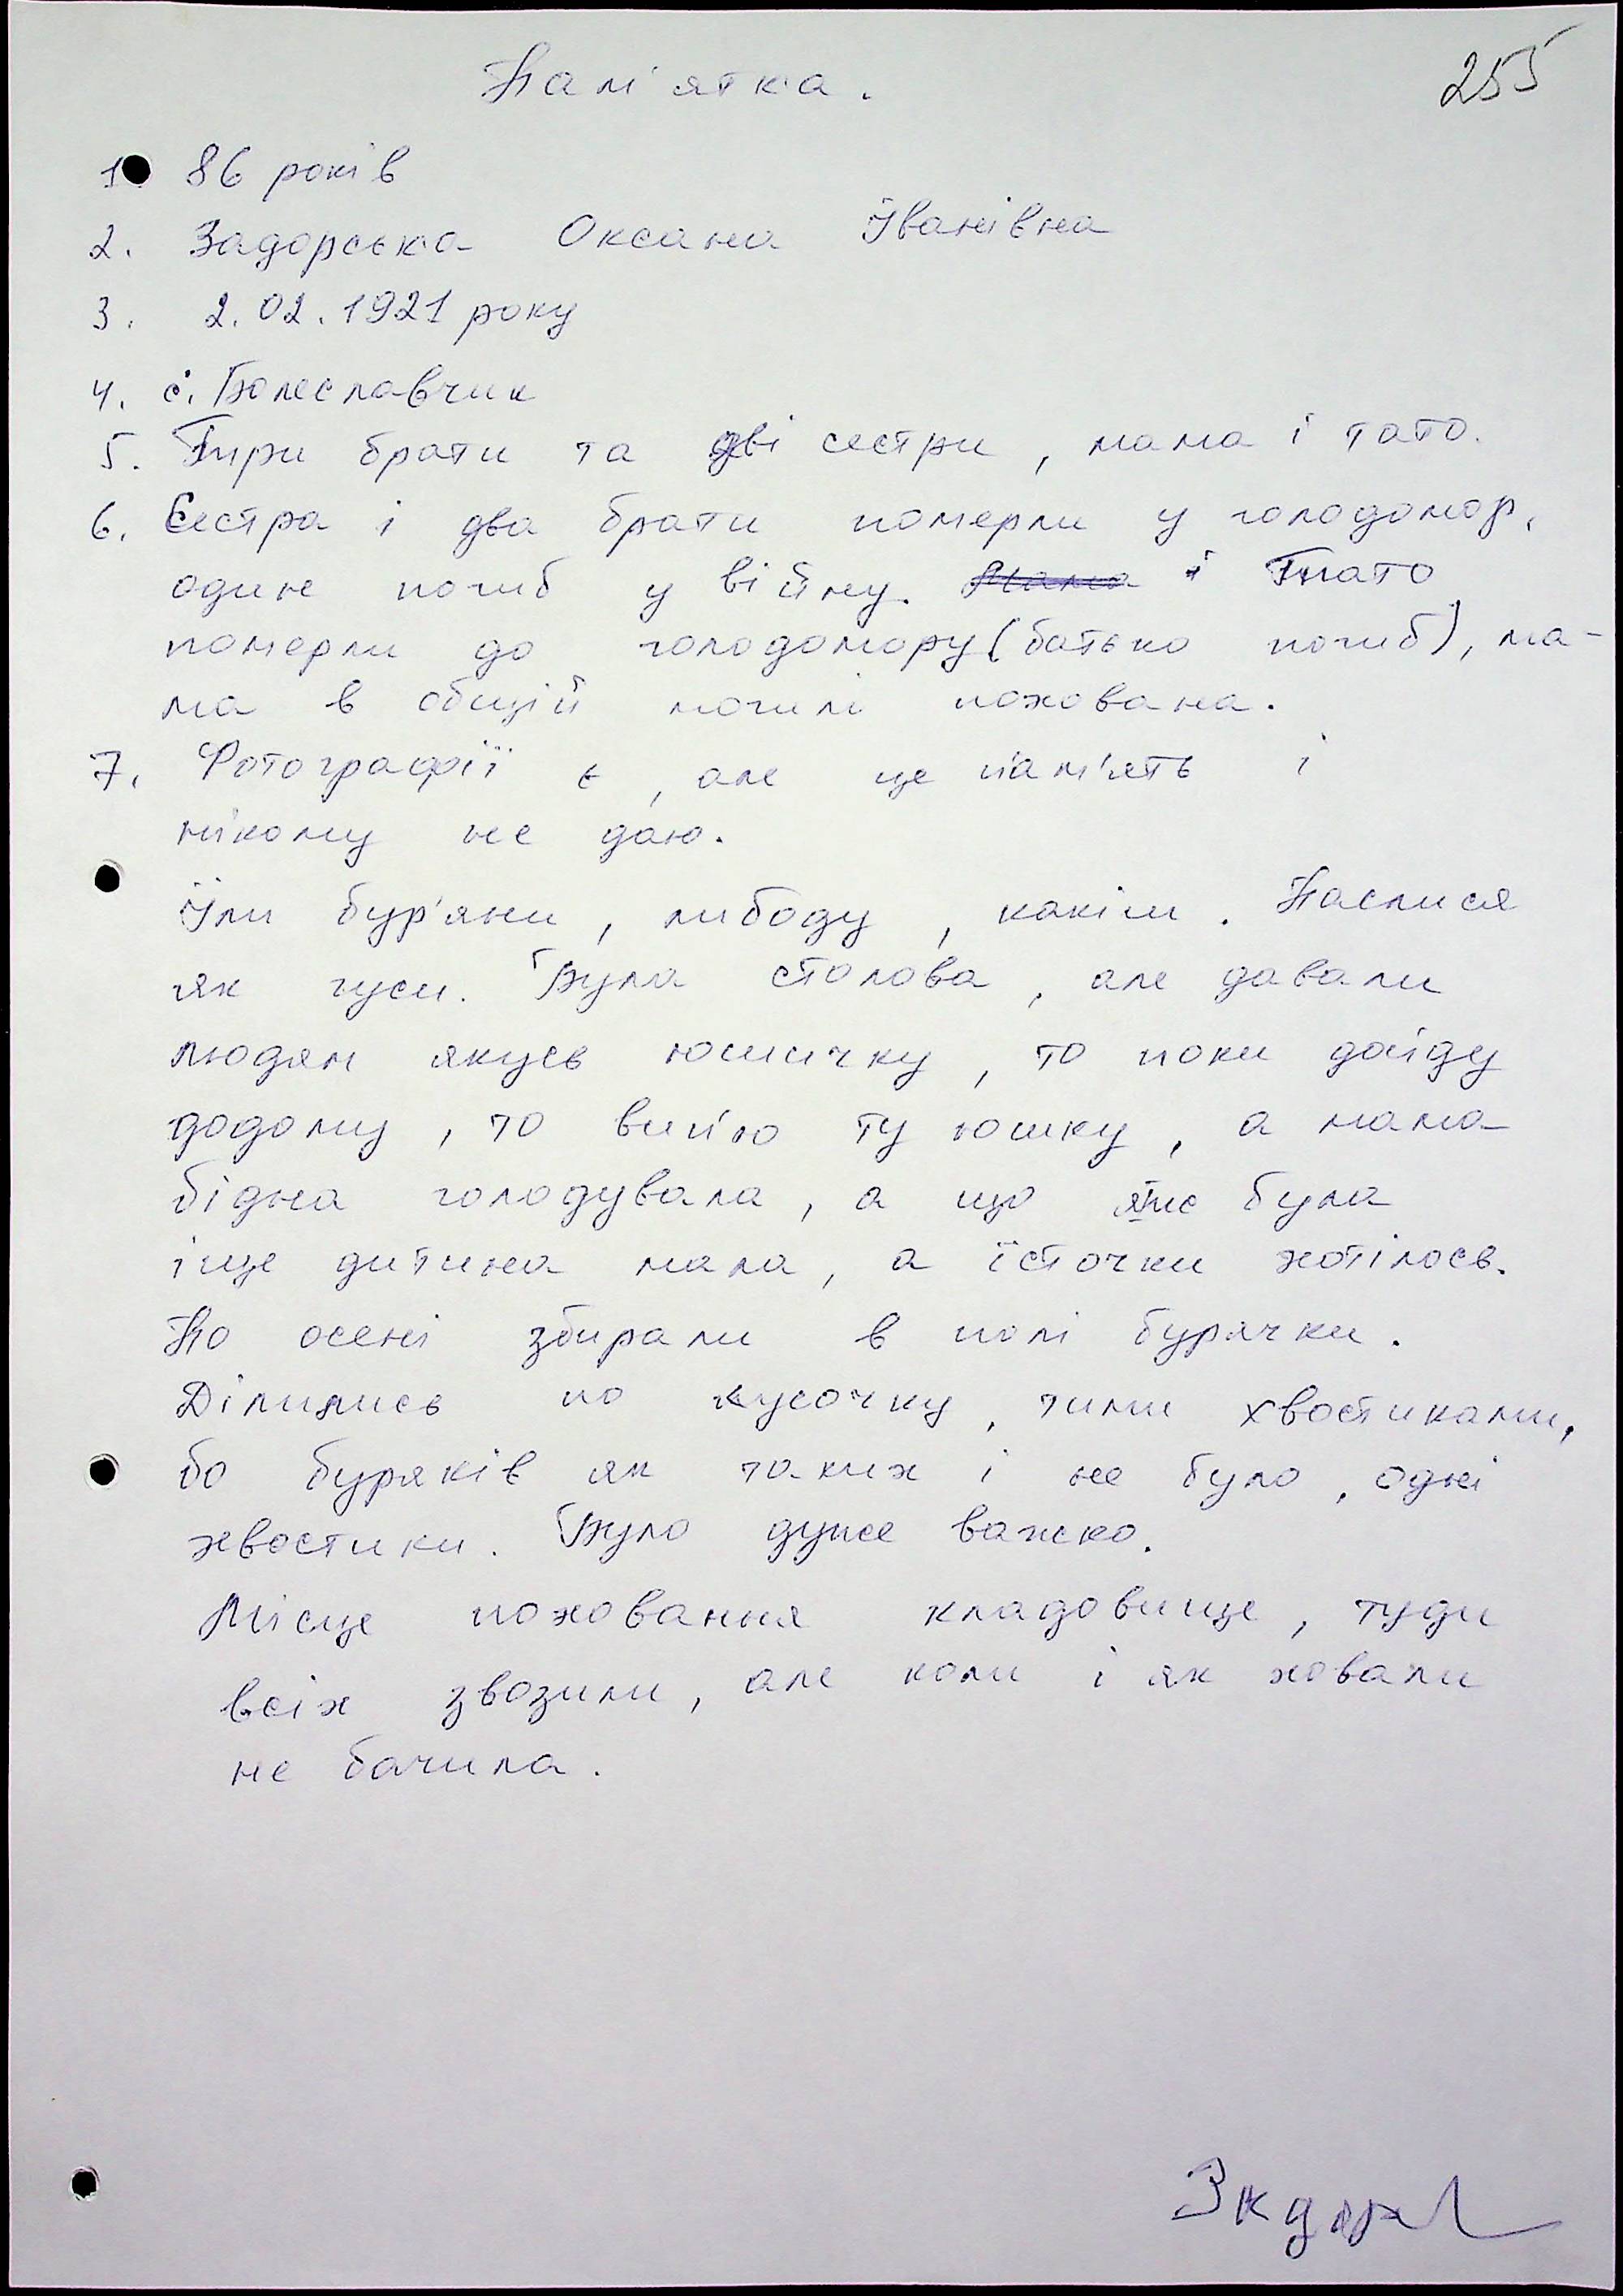 Пам'ятка.
255
1. 86 років
2. Задорська Оксана Іванівна
3. 2.02.1921 року
4. с. Болеславчик
5. Три брати та дві сестри, мама і тато.
6. Сестра і два брати померли у голодомор,
один погиб у війну. ~~Мама~~ і Тато
померли до голодомору (батько погиб), ма-
ма в общій могилі похована.
7. Фотографії є, але це пам'ять і
нікому не даю.
Їли бур'яни, либоду, качім. Паслися
як гуси. Була столова, але давали
людям якусь юшичку, то поки дойду
додому, то вип'ю ту юшку, а мама
бідна голодувала, а що була
іще дитина мала, а їсточки хотілось.
По осені збирали в полі бурячки.
Ділились по кусочку, тими хвостиками,
бо буряків як таких і не було, одні
хвостики. Було дуже важко.
Місце поховання кладовище, туди
всіх звозили, але коли і як ховали
не бачила.